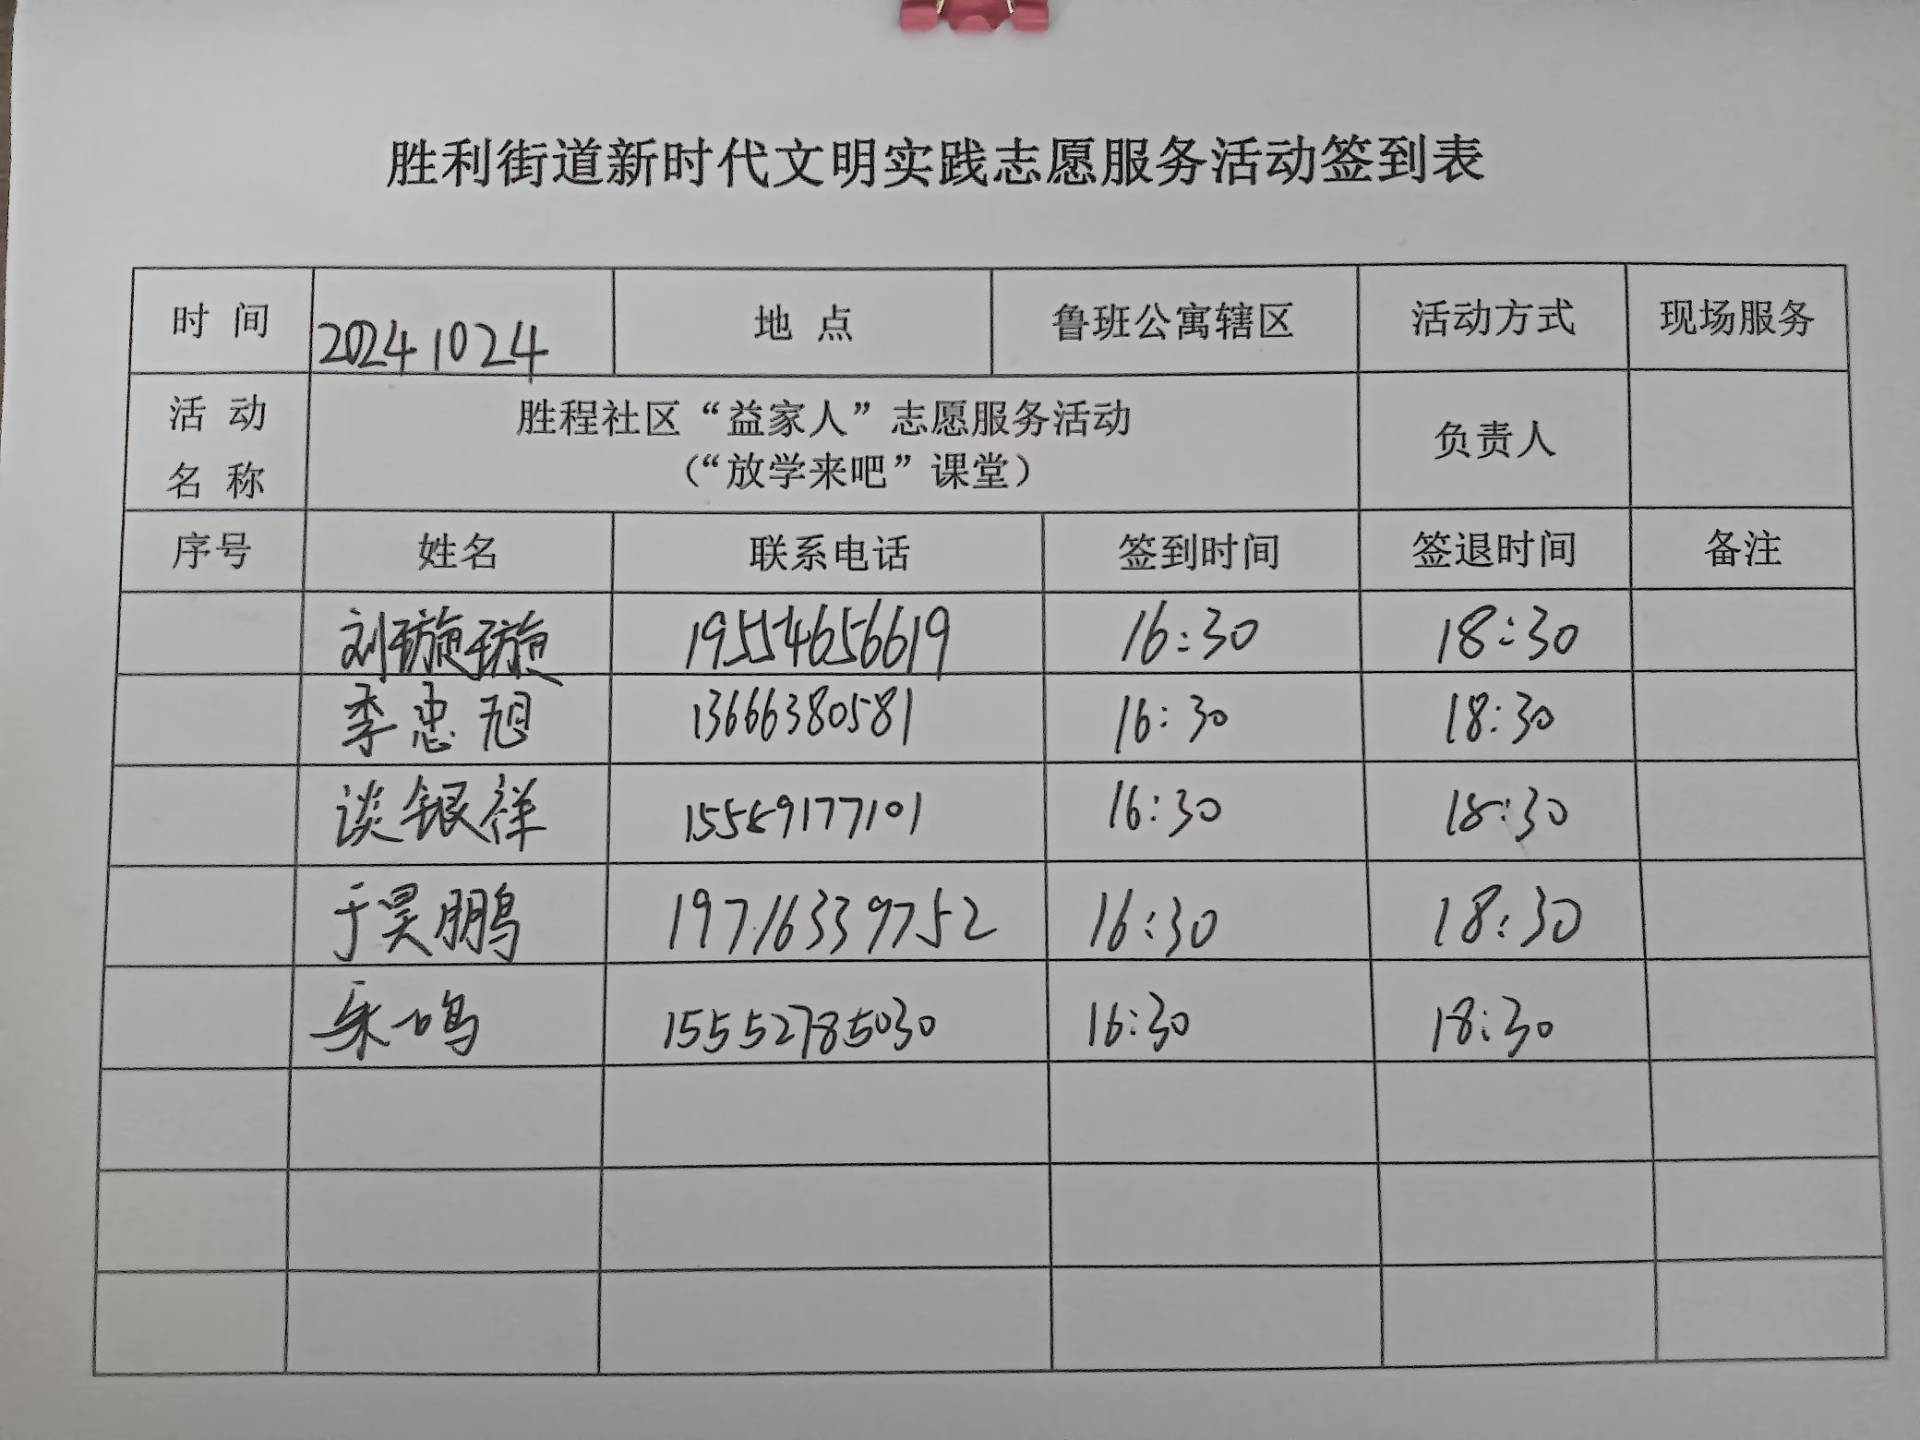 胜利街道新时代文明实践志愿服务活动签到表
时 间 20241024 地 点 鲁班公寓辖区 活动方式 现场服务
活 动 名 称 胜程社区“益家人”志愿服务活动 负责人
（“放学来吧”课堂）
序号 姓名 联系电话 签到时间 签退时间 备注
刘璇璇 19554656619 16:30 18:30
李忠旭 13666380581 16:30 18:30
谈银祥 15569177101 16:30 18:30
于昊鹏 19716339752 16:30 18:30
朱一鸣 15552785030 16:30 18:30